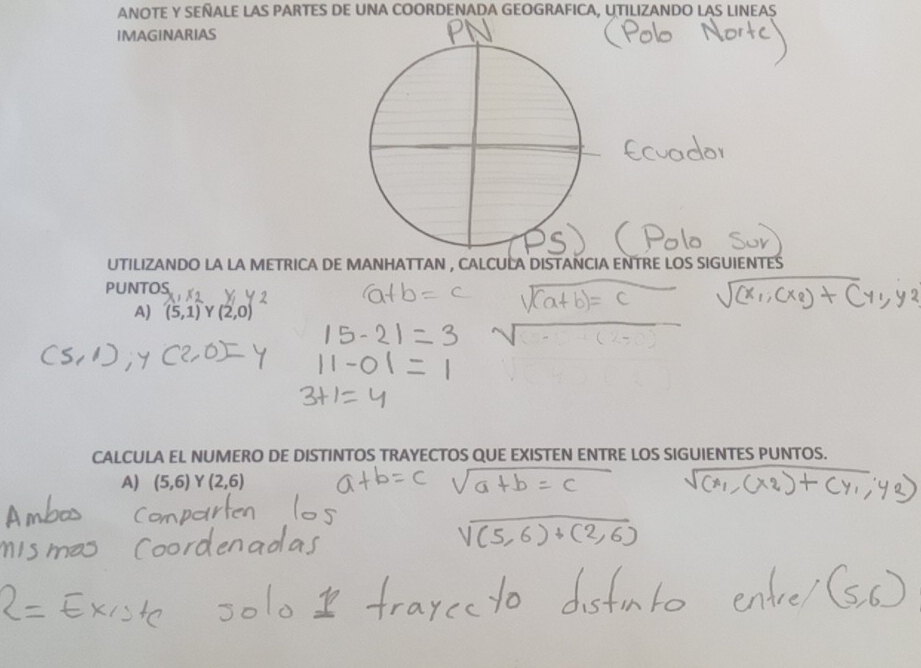 ANOTE Y SEÑALE LAS PARTES DE UNA COORDENADA GEOGRAFICA, UTILIZANDO LAS LINEAS
IMAGINARIAS
PN (Polo Norte)
Ecuador
(PS) (Polo Sur)
UTILIZANDO LA LA METRICA DE MANHATTAN , CALCULA DISTANCIA ENTRE LOS SIGUIENTES
PUNTOS
x1 x2 y1 y2
a+b = c √(a+b) = c √(x1,(x2) + (y1,y2
A) (5,1) Y (2,0)
|5-2| = 3
(5,1), y (2,0)= 4
|1-0| = 1
3+1= 4
CALCULA EL NUMERO DE DISTINTOS TRAYECTOS QUE EXISTEN ENTRE LOS SIGUIENTES PUNTOS.
A) (5,6) Y (2,6) a+b=c √a+b = c √(x1,(x2) + (y1,y2)
Ambas comparten los
mismas coordenadas
√(5,6) + (2,6)
R= Existe solo 1 trayecto distinto entre (5,6)